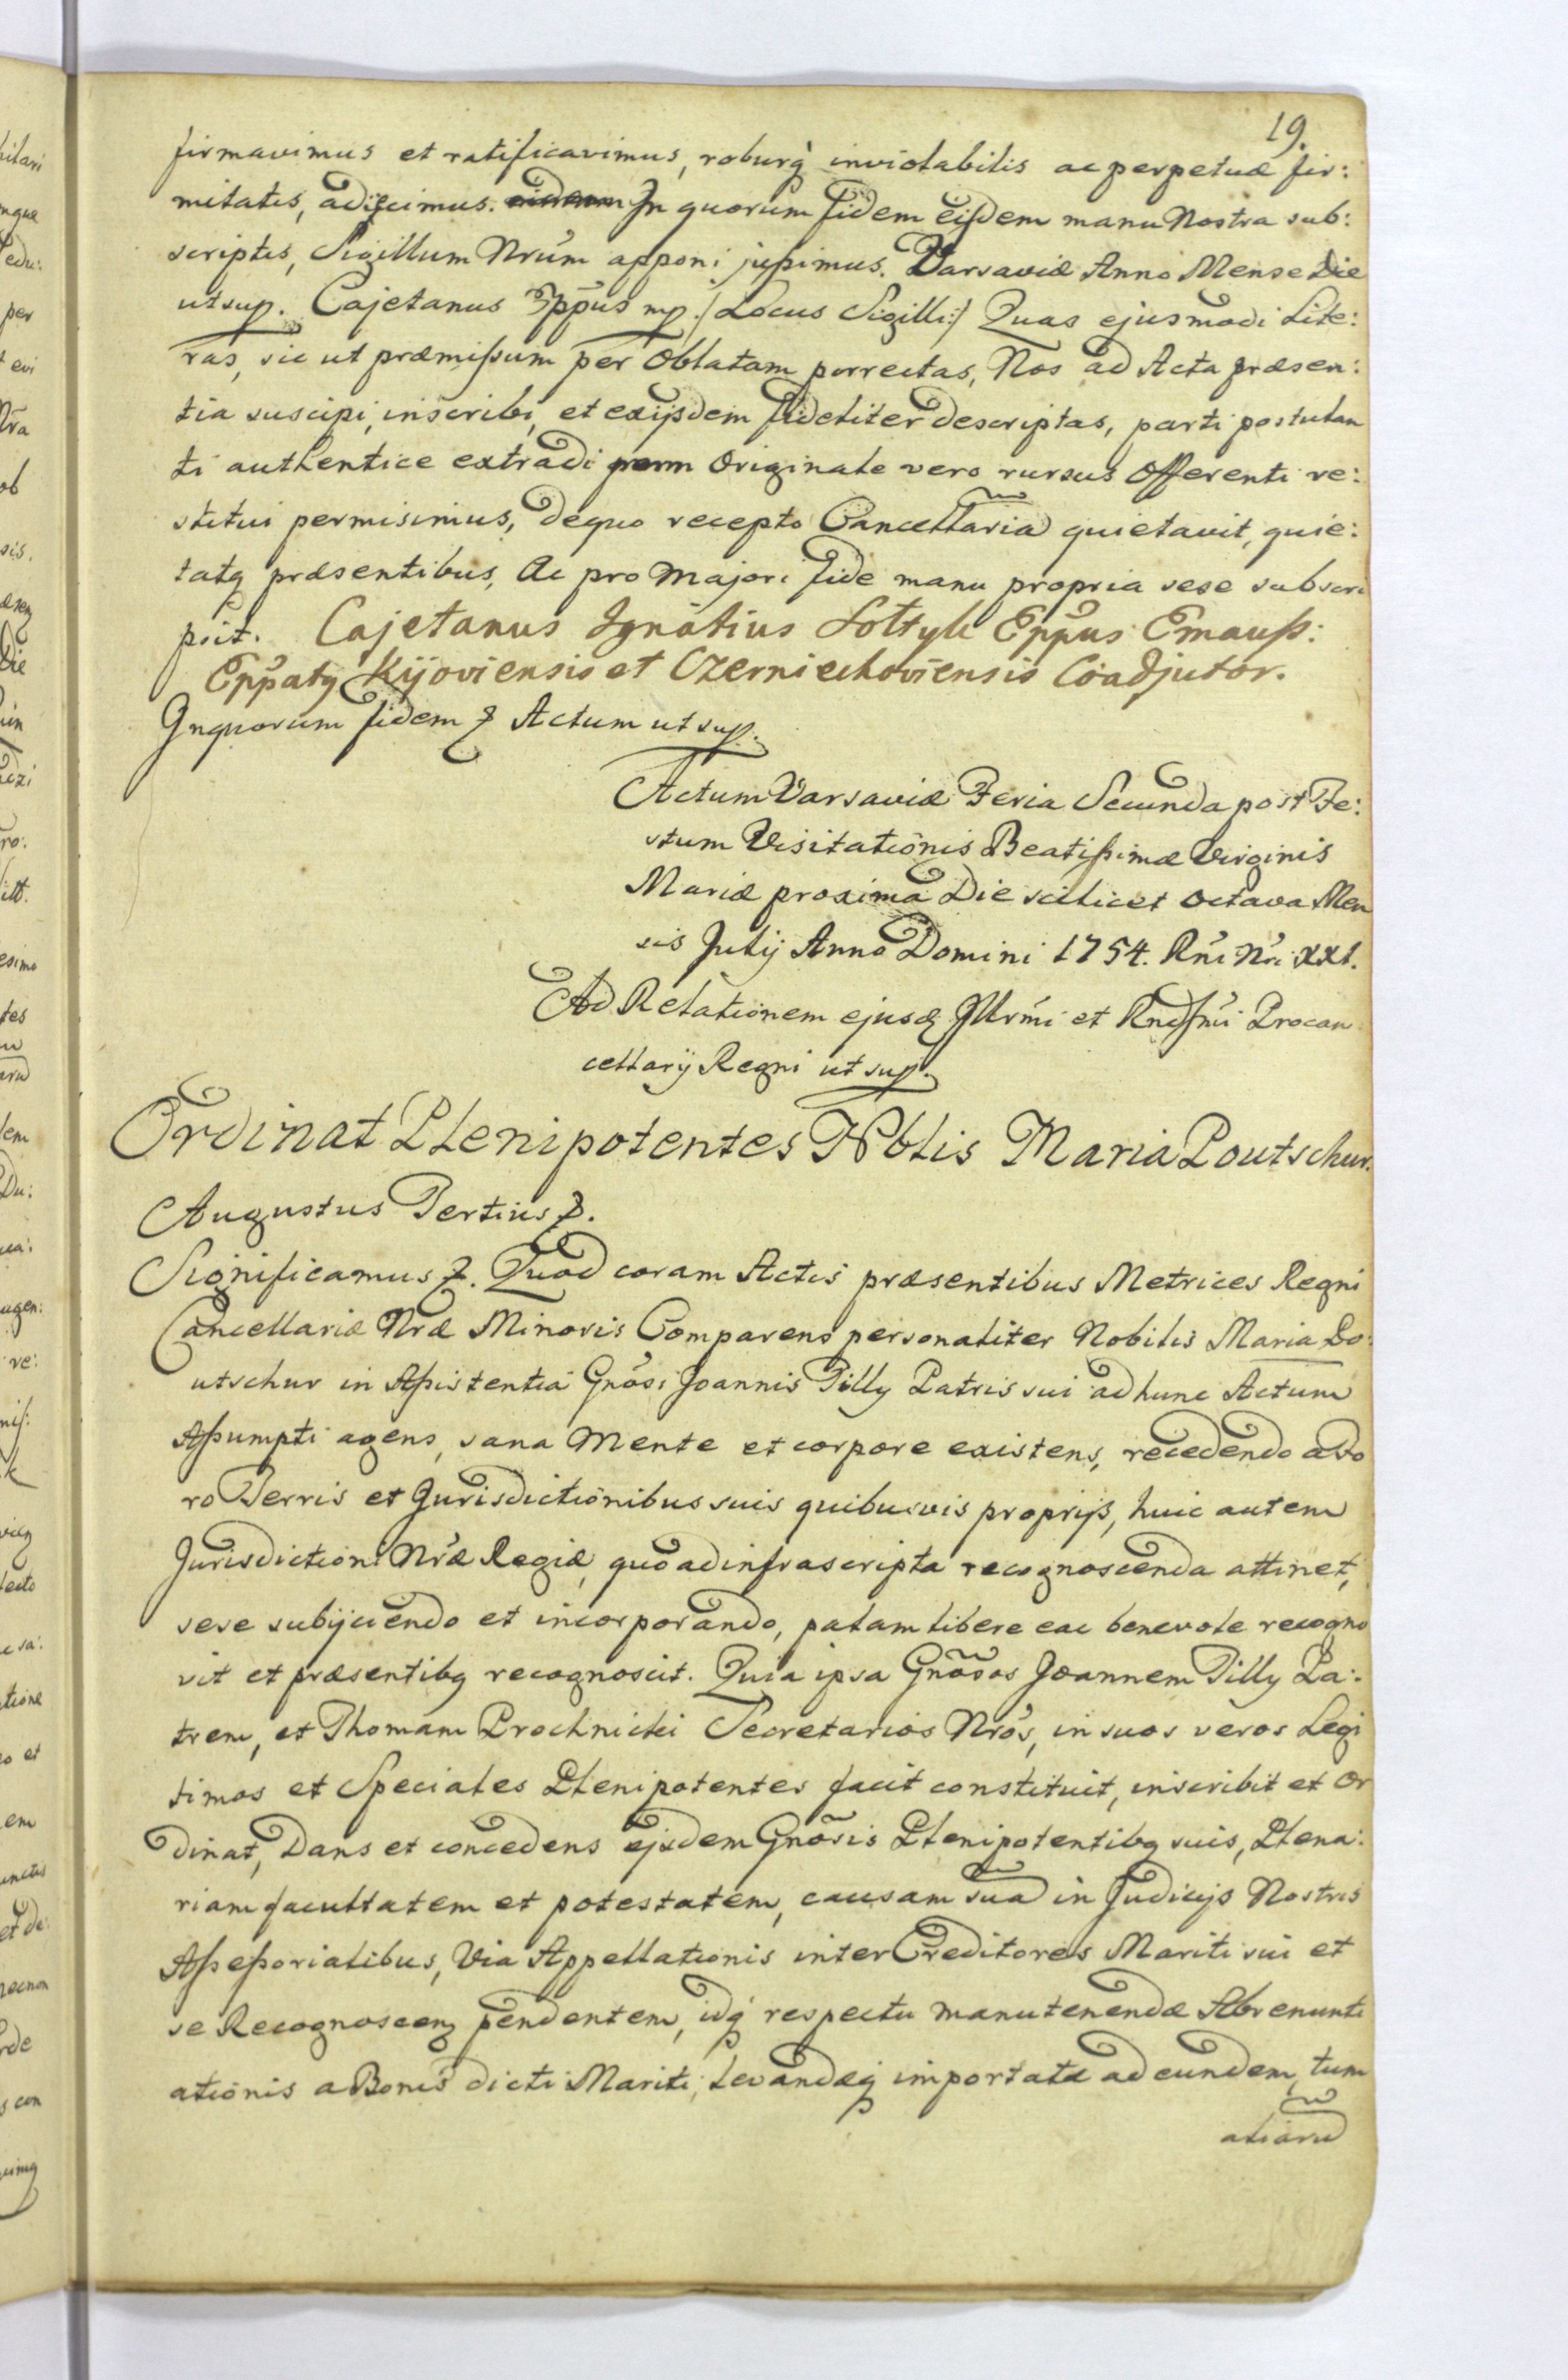 19.
firmavimus et ratificavimus, roburq́ inviolabilis ac perpetuæ fir:
mitatis, adijcimus. In quorum fidem eisdem manu Nostra sub:
scriptis, Sigillum Nrum apponi jussimus. Varsaviæ Anno Mense Die
ut sup. Cajetanus Eppus mp. /Locus Sigilli:/ Quas ejusmodi Lite:
ras, sic ut præmissum per Oblatam porrectas, Nos ad Acta præsen:
tia suscipi, inscribi, et exijsdem fideliter descriptas, parti postulan
ti authentice extradi Originale vero rursus Offerenti re:
stitui permisimus, dequo recepto Cancellaria quietavit, quie:
tatq præsentibus, Ac pro Majori fide manu propria sese subscri
psit. Cajetanus Ignatius Sołtyk Eppus Emauss:
Eppatq Kijoviensis et Czerniechoviensis Coadjutor.
Inquorum fidem & Actum ut sup.
Actum Varsaviæ Feria Secunda post Fe:
stum Visitationis Beatissimæ Virginis
Mariæ proxima Die scilicet octava Men
sis Julij Anno Domini 1754. Rni Nri XXI.
Ad Relationem ejusd Illrmi et Rndsmi Procan
cellarij Regni ut sup.
Ordinat Plenipotentes Nblis Maria Poutschur.
Augustus Tertius &.
Significamus &. Quod coram Actis præsentibus Metrices Regni
Cancellariæ Nræ Minoris Comparens personaliter Nobilis Maria Po:
utschur in Assistentia Gnosi Joannis Tilly Patris sui ad hunc Actum
Assumpti agens, sana Mente et corpore existens, recedendo a Fo
ro Terris et Jurisdictionibus suis quibusvis proprijs, huic autem
Jurisdictioni Nræ Regiæ, quoad infrascripta recognoscenda attinet,
sese subijciendo et incorporando, palam libere eac benevole recogno
vit et præsentibq recognoscit. Quia ipsa Gnosos Joannem Tilly Pa:
trem, et Thomam Prochnicki Secretarios Nros, in suos veros Legi
timos et Speciales Plenipotentes facit constituit, inscribit et Or
dinat, Dans et concedens ejsdem Gnosis Plenipotentibq suis, Plena:
riam facultatem et potestatem, causam sua in Judicijs Nostris
Assessorialibus, Via Appellationis inter Creditores Mariti sui et
se Recognoscenq pendentem, idq́ respectu manutenendæ Abrenunti
ationis a Bonis dicti Mariti, levandæq importatæ ad eundem, tum
aliaru